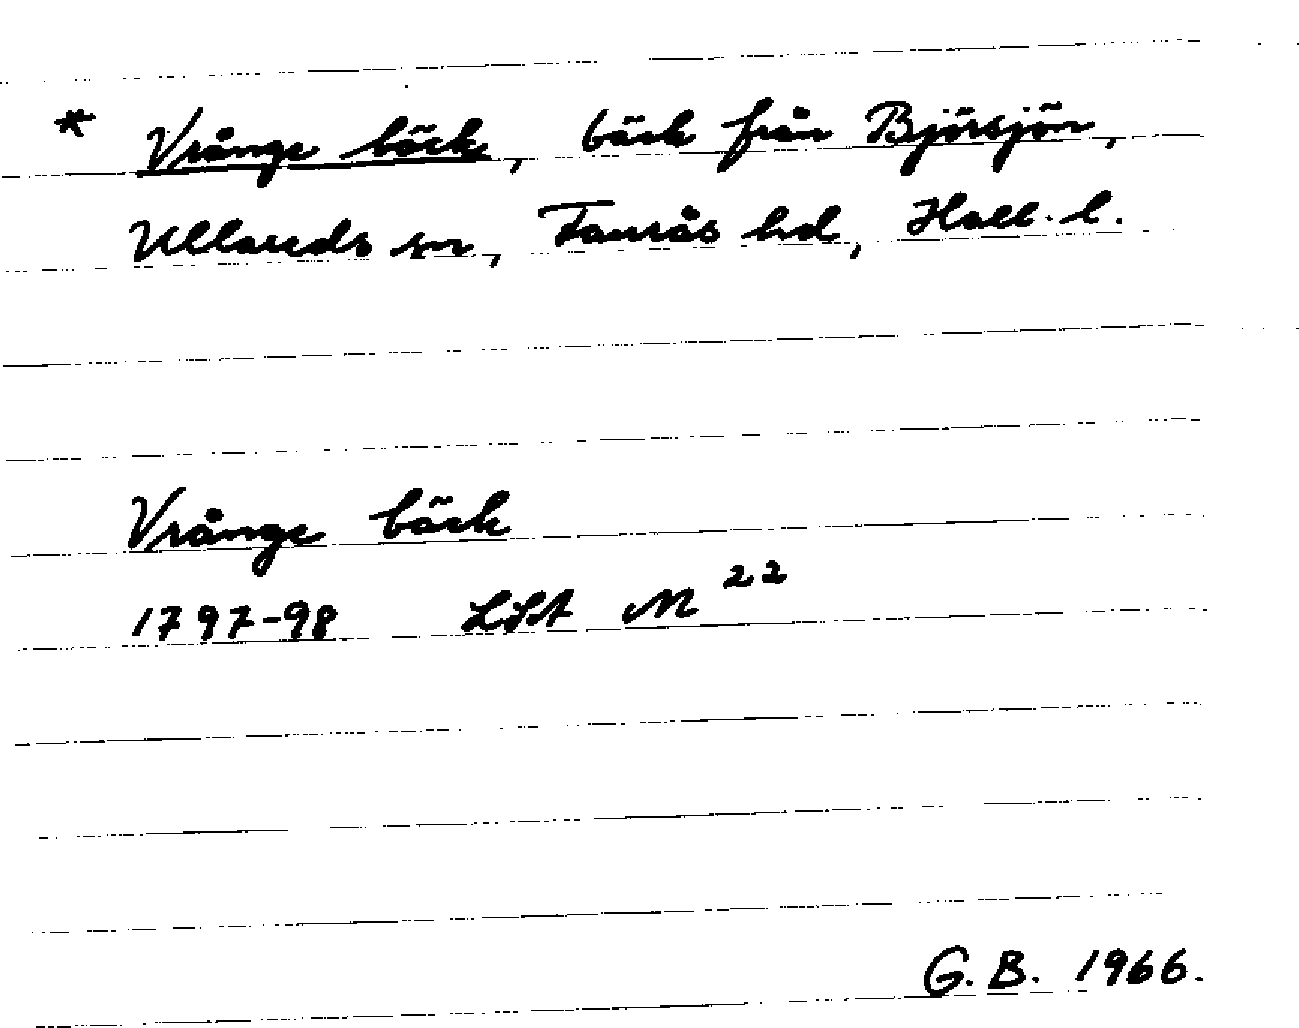 * Vrånge bäck, bäck från Björsjön,
Ullareds sn, Faurås hd, Hall. l.
Vrånge bäck
1797-98 LSt M 22
G. B. 1966.